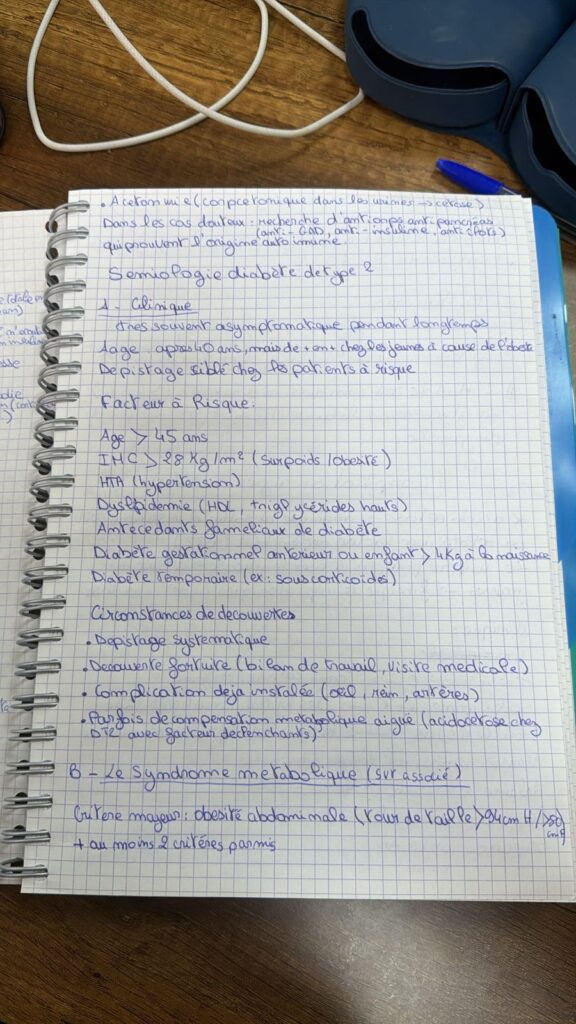 . Acetonnuie (corpcetonique dans les urines → cetose)
Dans les cas douteux : recherche d'anticorps antipancréas
(anti-GAD, anti-insuline, anti îlots)
qui prouvent l'origine auto immune
Semiologie diabète de type 2
1 - Clinique
tres souvent asymptomatique pendant longtemps
1age apres 40 ans, mais de + en + chez les jeunes à cause de l'obesite
Depistage siblé chez les patients à risque
Facteur à Risque :
Age > 45 ans
IMC > 28 Kg/m² (surpoids / obesité)
HTA (hypertension)
Dyslipidemie (HDL, triglycérides hauts)
Antecedants familiaux de diabète
Diabète gestationnel anterieur ou enfant > 4Kg à la naissance
Diabète temporaire (ex : sous corticoides)
Circonstances de decouvertes
. Depistage systematique
. Decouverte fortuite (bilan de travail, visite medicale)
. Complication deja installée (oeil, rein, artères)
. Parfois decompensation metabolique aiguë (acidocetose chez
DT2 avec facteur declenchants)
B - Le Syndrome metabolique (sur associé)
Critere majeur : obesité abdominale (tour de taille > 94cm H / > 80
cm F)
+ au moins 2 critéres parmis